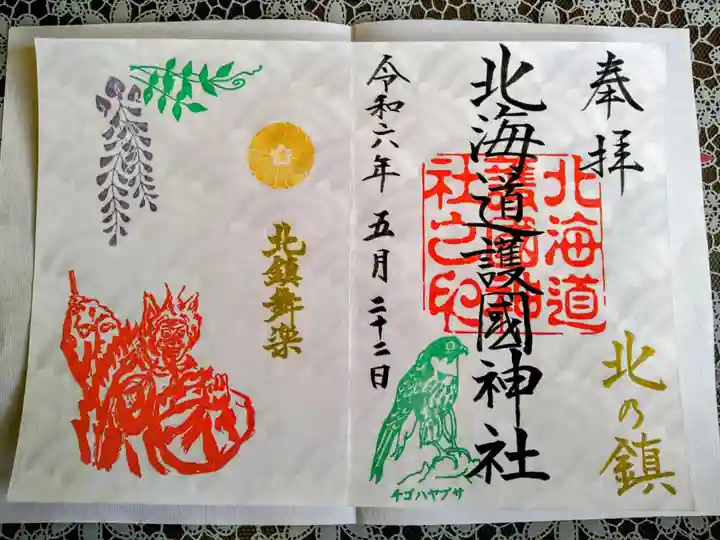 奉拝
北の鎮
北海道
護國神
社之印
北海道護國神社
令和六年 五月 二十二日
チゴハヤブサ
北鎮舞楽